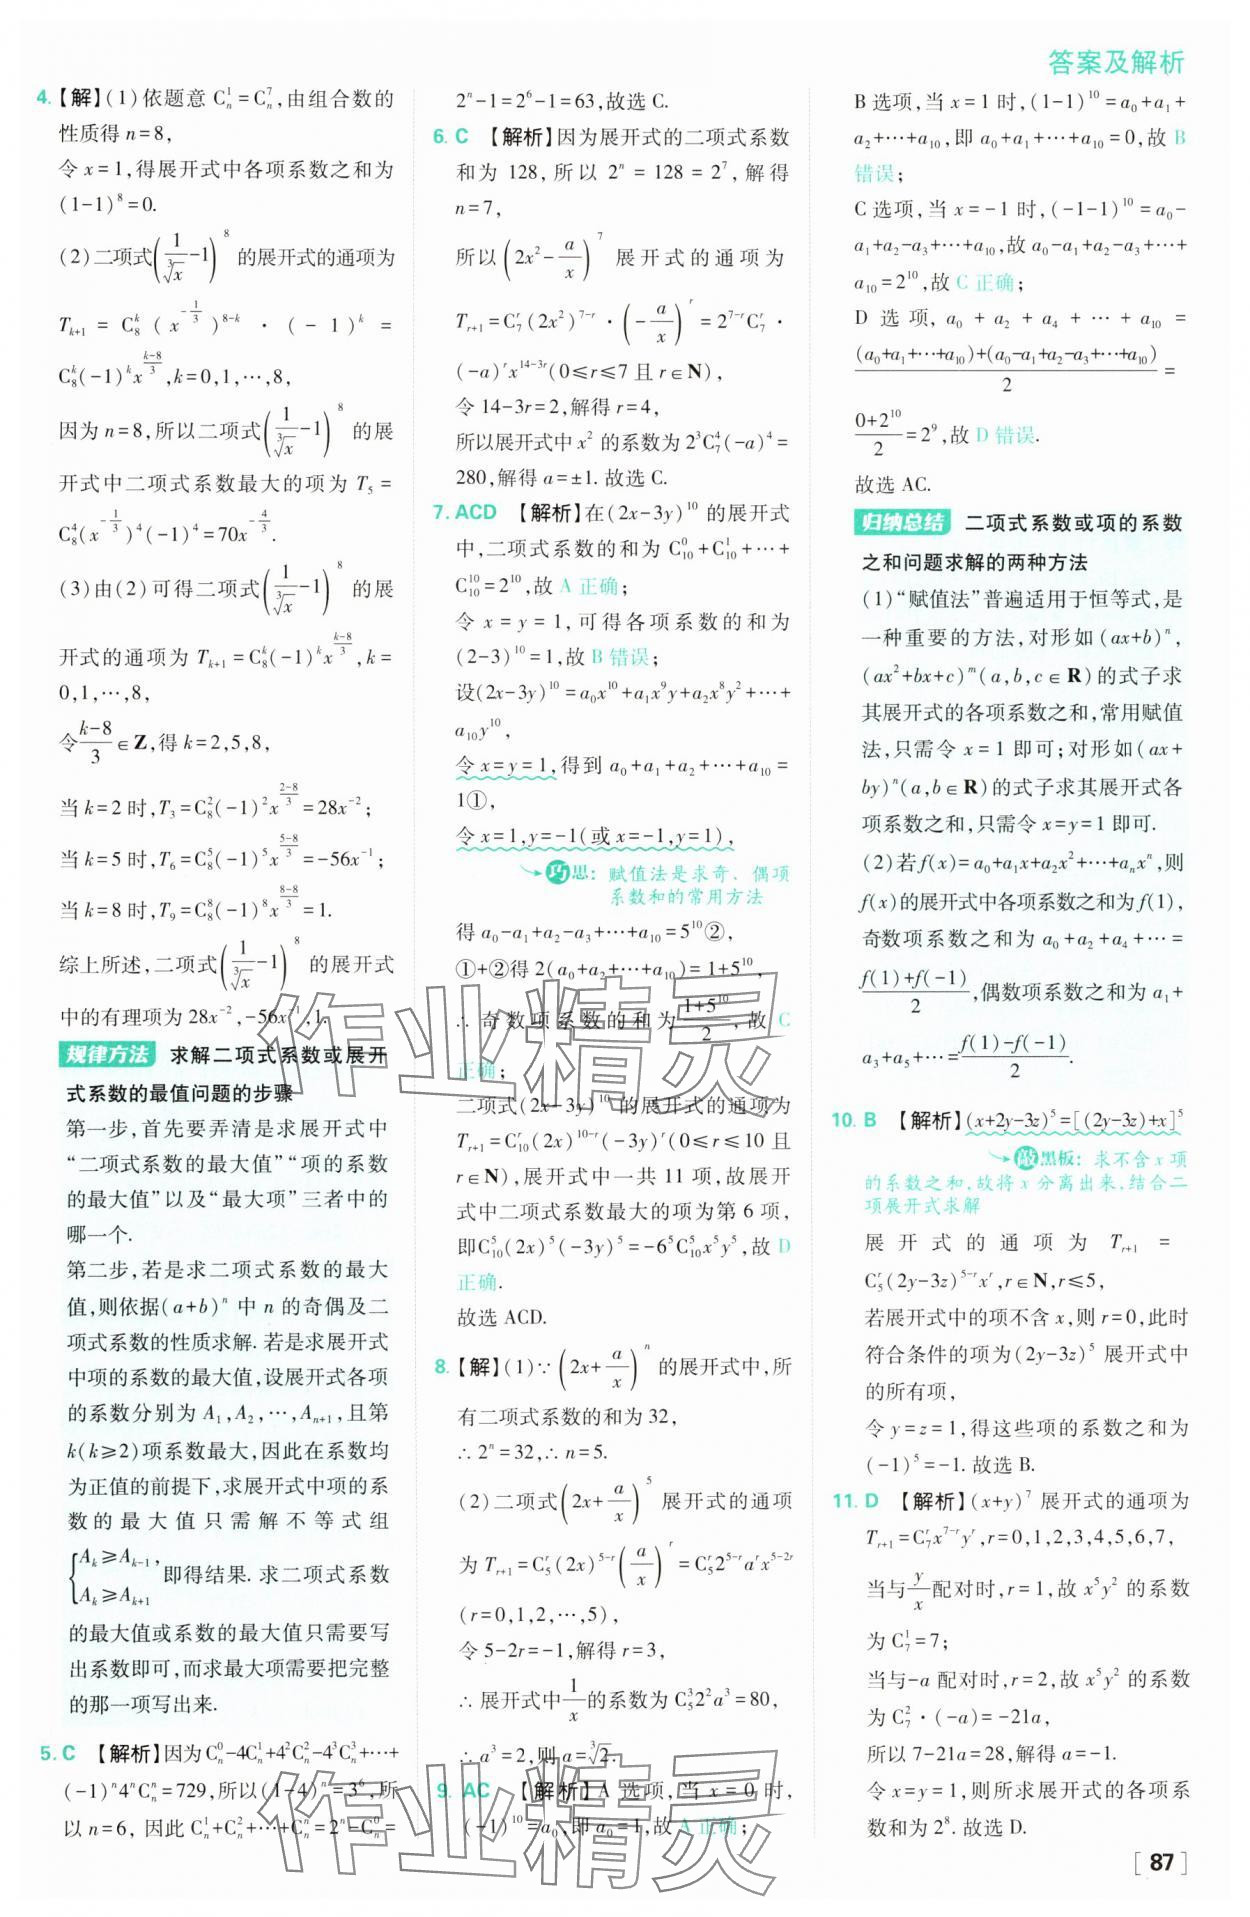 答案及解析
4.【解】(1)依题意 C_n^1=C_n^7,由组合数的
性质得 n=8,
令 x=1,得展开式中各项系数之和为
(1-1)^8=0.
(2)二项式(1/∛x-1)^8 的展开式的通项为
T_{k+1} = C_8^k (x^{-1/3})^{8-k} · (-1)^k =
C_8^k(-1)^k x^{(k-8)/3},k=0,1,…,8,
因为 n=8,所以二项式(1/∛x-1)^8 的展
开式中二项式系数最大的项为 T_5 =
C_8^4(x^{-1/3})^4(-1)^4=70x^{-4/3}.
(3)由(2)可得二项式(1/∛x-1)^8 的展
开式的通项为 T_{k+1}=C_8^k(-1)^k x^{(k-8)/3},k=
0,1,…,8,
令(k-8)/3∈Z,得 k=2,5,8,
当 k=2 时,T_3=C_8^2(-1)^2x^{(2-8)/3}=28x^{-2};
当 k=5 时,T_6=C_8^5(-1)^5x^{(5-8)/3}=-56x^{-1};
当 k=8 时,T_9=C_8^8(-1)^8x^{(8-8)/3}=1.
综上所述,二项式(1/∛x-1)^8 的展开式
中的有理项为 28x^{-2},-56x^{-1},1.
规律方法 求解二项式系数或展开
式系数的最值问题的步骤
第一步,首先要弄清是求展开式中
“二项式系数的最大值”“项的系数
的最大值”以及“最大项”三者中的
哪一个.
第二步,若是求二项式系数的最大
值,则依据(a+b)^n 中 n 的奇偶及二
项式系数的性质求解. 若是求展开式
中项的系数的最大值,设展开式各项
的系数分别为 A_1,A_2,…,A_{n+1},且第
k(k≥2)项系数最大,因此在系数均
为正值的前提下,求展开式中项的系
数的最大值只需解不等式组
{A_k≥A_{k-1},
A_k≥A_{k+1} 即得结果. 求二项式系数
的最大值或系数的最大值只需要写
出系数即可,而求最大项需要把完整
的那一项写出来.
5. C 【解析】因为 C_n^0-4C_n^1+4^2C_n^2-4^3C_n^3+…+
(-1)^n4^nC_n^n=729,所以(1-4)^n=3^6,所
以 n=6, 因此 C_n^1+C_n^2+…+C_n^n=2^n-C_n^0=
2^n-1=2^6-1=63,故选 C.
6. C 【解析】因为展开式的二项式系数
和为 128,所以 2^n = 128 = 2^7,解得
n=7,
所以(2x^2-a/x)^7 展开式的通项为
T_{r+1}=C_7^r(2x^2)^{7-r}·(-a/x)^r=2^{7-r}C_7^r·
(-a)^r x^{14-3r}(0≤r≤7 且 r∈N),
令 14-3r=2,解得 r=4,
所以展开式中 x^2 的系数为 2^3C_7^4(-a)^4=
280,解得 a=±1. 故选 C.
7. ACD 【解析】在(2x-3y)^10 的展开式
中,二项式系数的和为 C_10^0+C_10^1+…+
C_10^10=2^10,故 A 正确;
令 x=y=1,可得各项系数的和为
(2-3)^10=1,故 B 错误;
设(2x-3y)^10=a_0x^10+a_1x^9y+a_2x^8y^2+…+
a_10y^10,
令 x=y=1,得到 a_0+a_1+a_2+…+a_10=
1①,
令 x=1,y=-1(或 x=-1,y=1),
巧思:赋值法是求奇、偶项
系数和的常用方法
得 a_0-a_1+a_2-a_3+…+a_10=5^10②,
①+②得 2(a_0+a_2+…+a_10)=1+5^10,
∴ 奇数项系数的和为(1+5^10)/2,故 C
正确;
二项式(2x-3y)^10 的展开式的通项为
T_{r+1}=C_10^r(2x)^{10-r}(-3y)^r(0≤r≤10 且
r∈N),展开式中一共 11 项,故展开
式中二项式系数最大的项为第 6 项,
即C_10^5(2x)^5(-3y)^5=-6^5C_10^5x^5y^5,故 D
正确.
故选 ACD.
8.【解】(1)∵(2x+a/x)^n 的展开式中,所
有二项式系数的和为 32,
∴ 2^n=32,∴ n=5.
(2)二项式(2x+a/x)^5 展开式的通项
为 T_{r+1}=C_5^r(2x)^{5-r}(a/x)^r=C_5^r2^{5-r}a^rx^{5-2r}
(r=0,1,2,…,5),
令 5-2r=-1,解得 r=3,
∴ 展开式中1/x的系数为 C_5^3 2^2a^3=80,
∴ a^3=2,则 a=∛2.
9. AC 【解析】A 选项,当 x=0 时,
(-1)^10=a_0,即 a_0=1,故 A 正确;
B 选项,当 x=1 时,(1-1)^10=a_0+a_1+
a_2+…+a_10,即 a_0+a_1+…+a_10=0,故 B
错误;
C 选项,当 x=-1 时,(-1-1)^10=a_0-
a_1+a_2-a_3+…+a_10,故 a_0-a_1+a_2-a_3+…+
a_10=2^10,故 C 正确;
D 选项, a_0 + a_2 + a_4 + … + a_10 =
((a_0+a_1+…+a_10)+(a_0-a_1+a_2-a_3+…+a_10))/2 =
(0+2^10)/2=2^9,故 D 错误.
故选 AC.
归纳总结 二项式系数或项的系数
之和问题求解的两种方法
(1)“赋值法”普遍适用于恒等式,是
一种重要的方法,对形如(ax+b)^n,
(ax^2+bx+c)^m(a,b,c∈R)的式子求
其展开式的各项系数之和,常用赋值
法,只需令 x=1 即可;对形如(ax+
by)^n(a,b∈R)的式子求其展开式各
项系数之和,只需令 x=y=1 即可.
(2)若 f(x)=a_0+a_1x+a_2x^2+…+a_nx^n,则
f(x)的展开式中各项系数之和为 f(1),
奇数项系数之和为 a_0+a_2+a_4+…=
(f(1)+f(-1))/2,偶数项系数之和为 a_1+
a_3+a_5+…=(f(1)-f(-1))/2.
10. B 【解析】(x+2y-3z)^5=[(2y-3z)+x]^5
敲黑板:求不含 x 项
的系数之和,故将 x 分离出来,结合二
项展开式求解
展开式的通项为 T_{r+1} =
C_5^r(2y-3z)^{5-r}x^r,r∈N,r≤5,
若展开式中的项不含 x,则 r=0,此时
符合条件的项为(2y-3z)^5 展开式中
的所有项,
令 y=z=1,得这些项的系数之和为
(-1)^5=-1. 故选 B.
11. D 【解析】(x+y)^7 展开式的通项为
T_{r+1}=C_7^rx^{7-r}y^r,r=0,1,2,3,4,5,6,7,
当与y/x配对时,r=1,故 x^5y^2 的系数
为 C_7^1=7;
当与-a 配对时,r=2,故 x^5y^2 的系数
为 C_7^2·(-a)=-21a,
所以 7-21a=28,解得 a=-1.
令 x=y=1,则所求展开式的各项系
数和为 2^8. 故选 D.
[87]
作业精灵
作业精灵